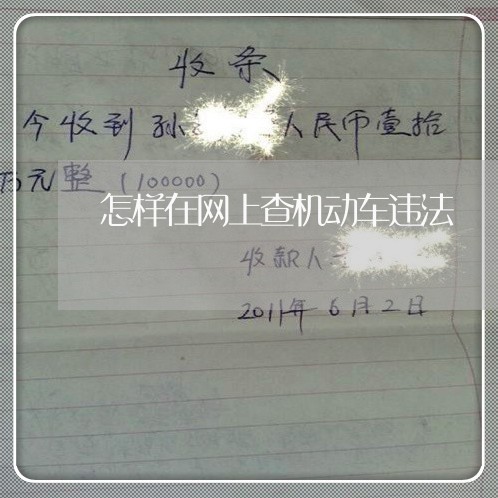 收条
今收到孙 人民币壹拾
万元整(100000)
怎样在网上查机动车违法
收款人
2011年6月2日